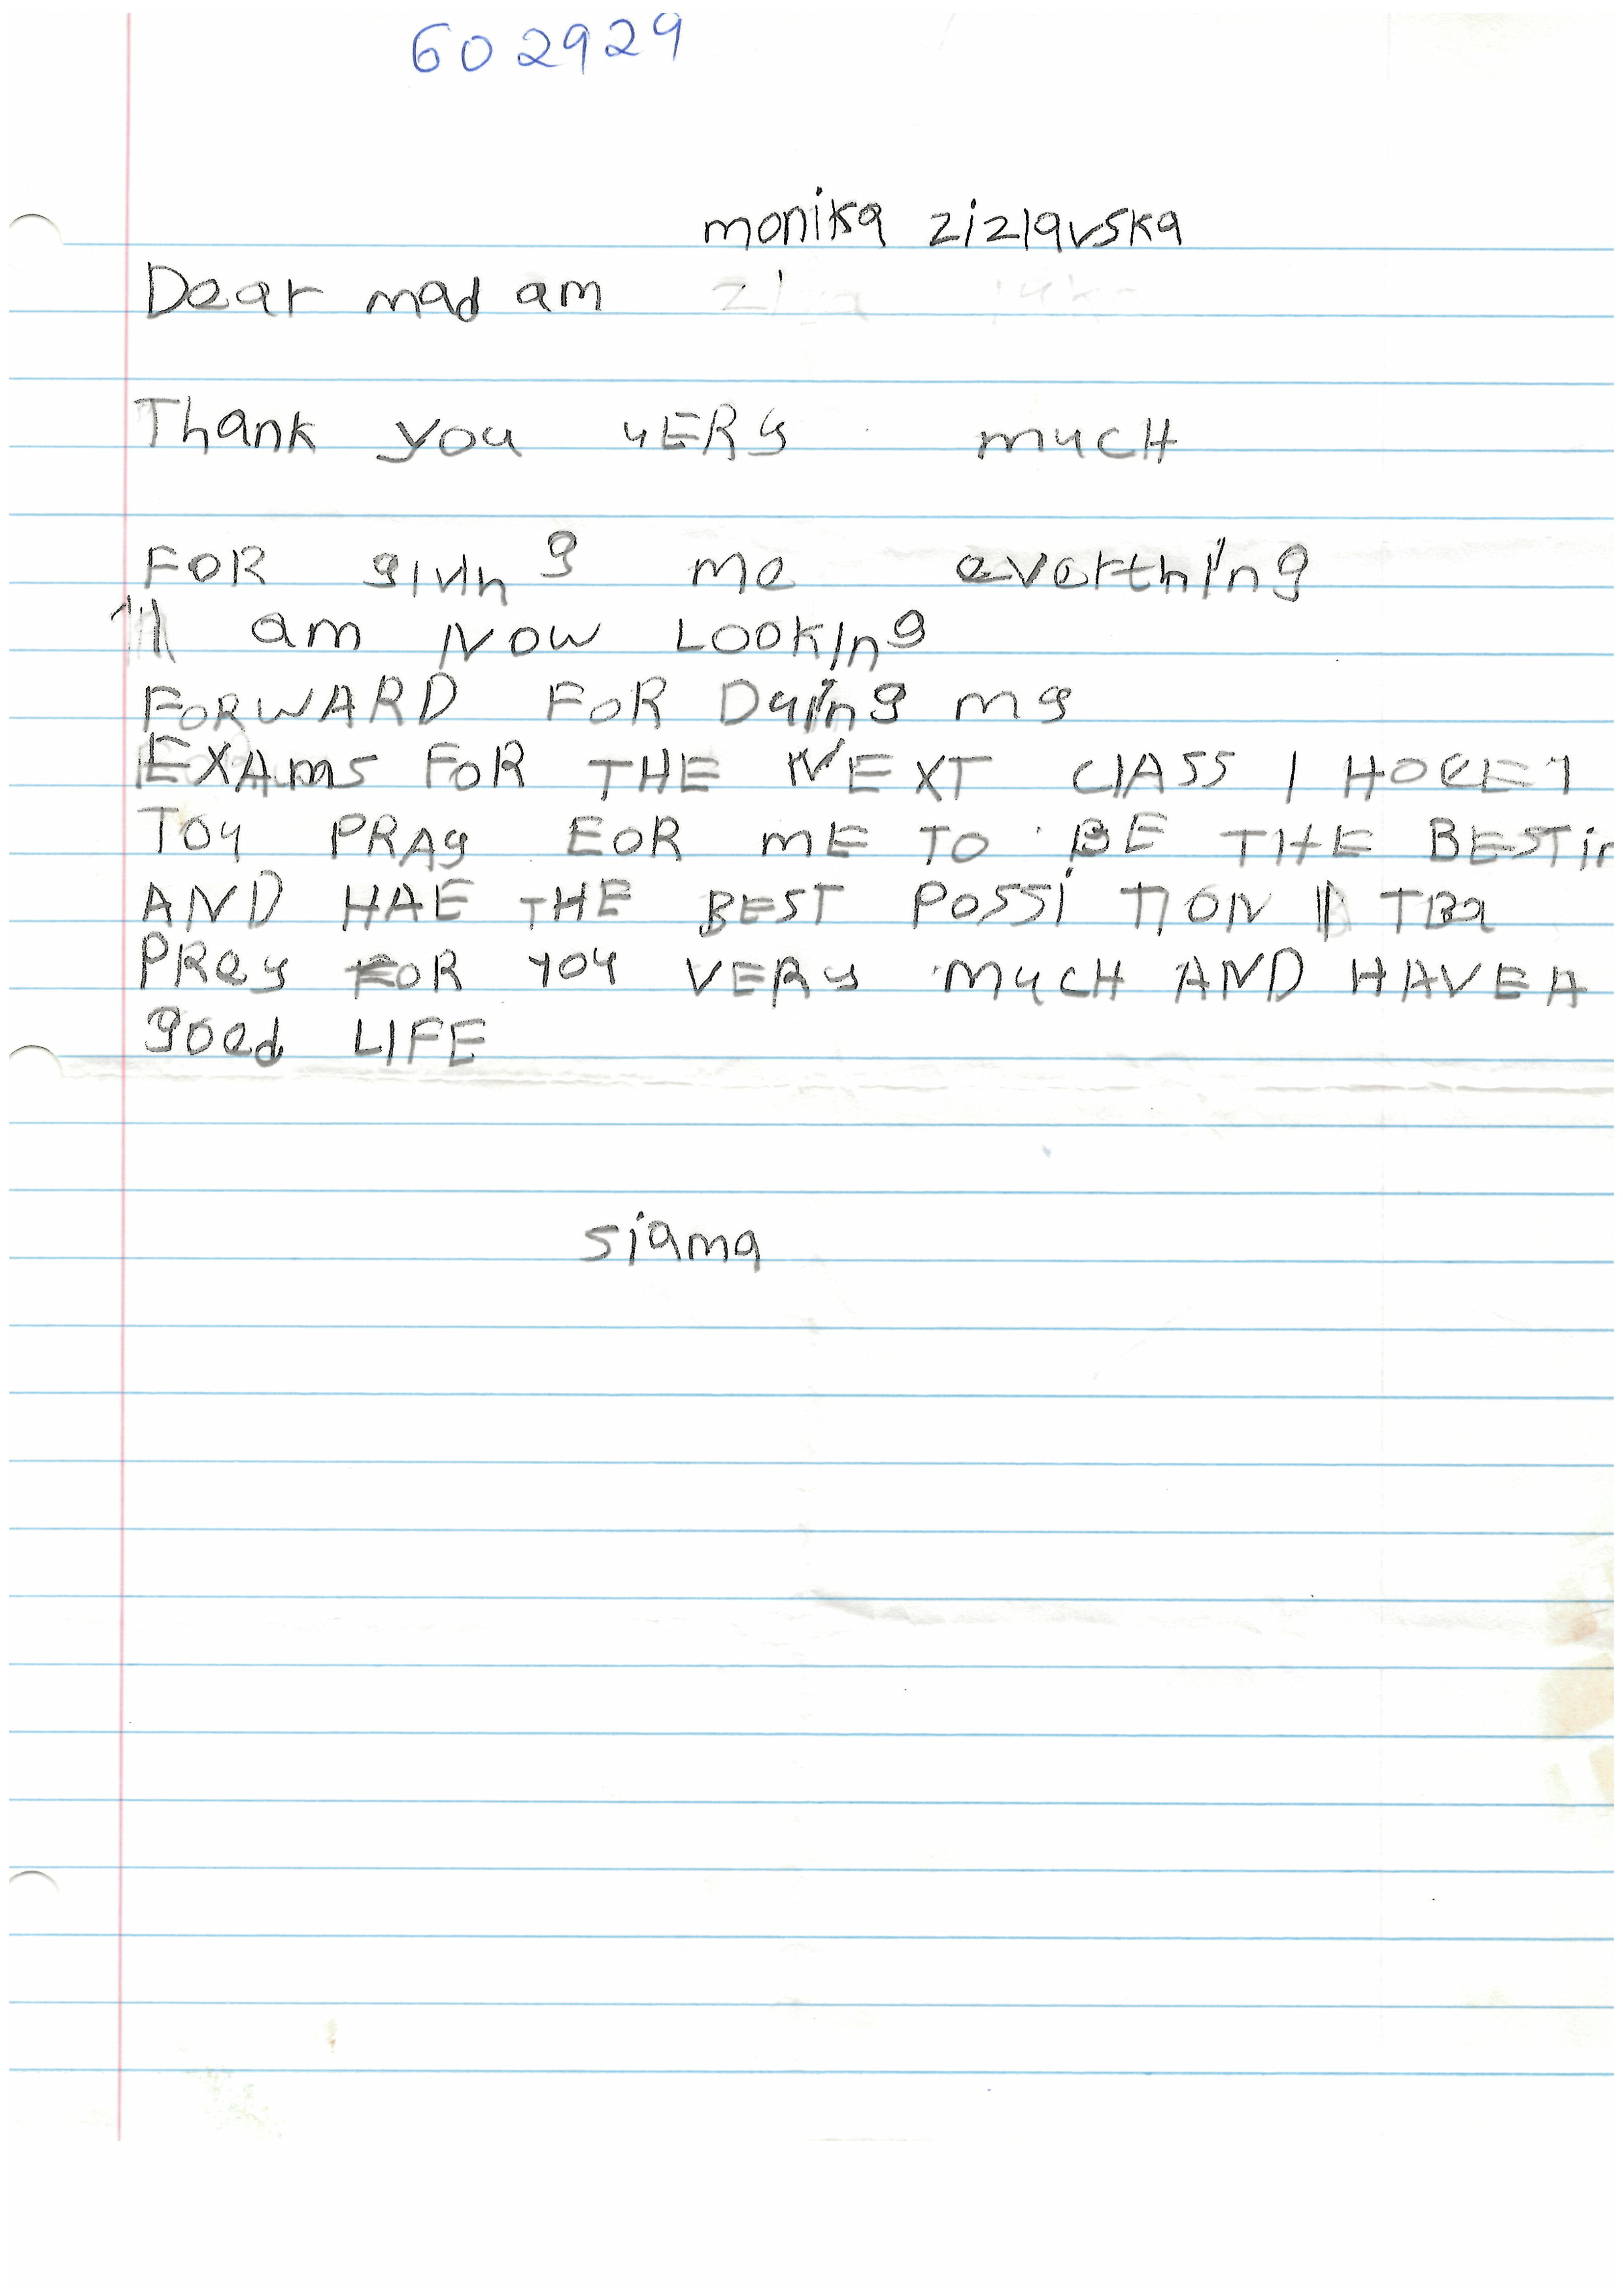 602929
monika zizlavska
Dear madam
Thank you VERy much
FOR giving me everthing
I am NOW LOOKIng
FORWARD FOR Duing my
EXAMS FOR THE NEXT CLASS I HOPE
PRAy FOR ME TO BE THE BEST in
AND HAE THE BEST POSSITION
PRey FOR YOU VERy MuCH AND HAVE A
good LIFE
siama